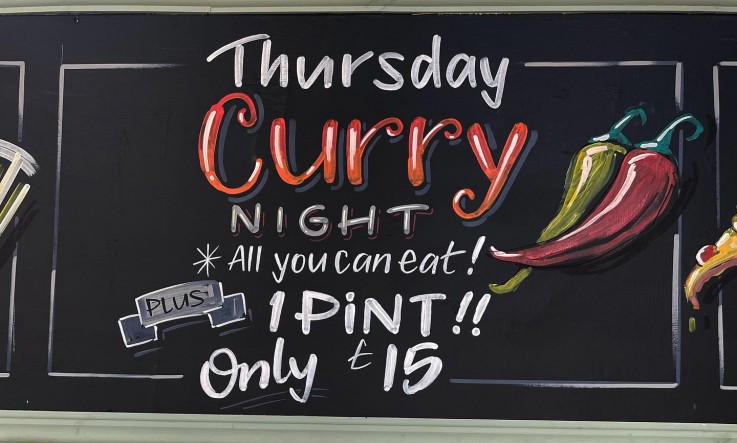 Thursday
Curry
NIGHT
* All you can eat!
PLUS
1 PiNT!!
Only £15